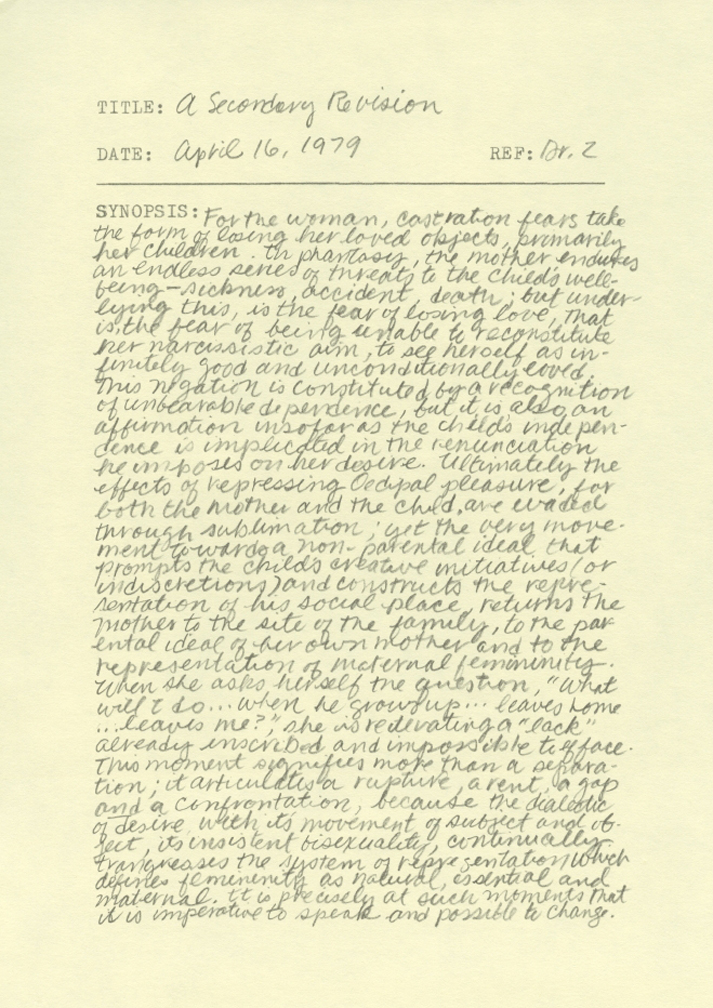 TITLE: A Secondary Revision
DATE: April 16, 1979 REF: Dr. 2
SYNOPSIS: For the woman, castration fears take
the form of losing her loved objects, primarily
her children. In phantasy, the mother endures
an endless series of threats to the child's well-
being—sickness, accident, death; but under-
lying this, is the fear of losing love, that
is, the fear of being unable to reconstitute
her narcissistic aim, to see herself as in-
finitely good and unconditionally loved.
This negation is constituted by a recognition
of unbearable dependence, but it is also an
affirmation insofar as the child's indepen-
dence is implicated in the renunciation
he imposes on her desire. Ultimately the
effects of repressing Oedipal pleasure, for
both the mother and the child, are evaded
through sublimation; yet the very move-
ment towards a non-parental ideal that
prompts the child's creative initiatives (or
indiscretions) and constructs the repre-
sentation of his social place, returns the
mother to the site of the family, to the par
ental ideal of her own mother and to the
representation of maternal femininity.
When she asks herself the question, "What
will I do... when he grows up... leaves home
...leaves me?", she is reiterating a "lack"
already inscribed and impossible to efface.
This moment signifies more than a separa-
tion; it articulates a rupture, a rent, a gap
and a confrontation, because the dialectic
of desire, with its movement of subject and ob-
ject, its insistent bisexuality, continually
transgresses the system of representation which
defines femininity as natural, essential and
maternal. It is precisely at such moments that
it is imperative to speak and possible to change.